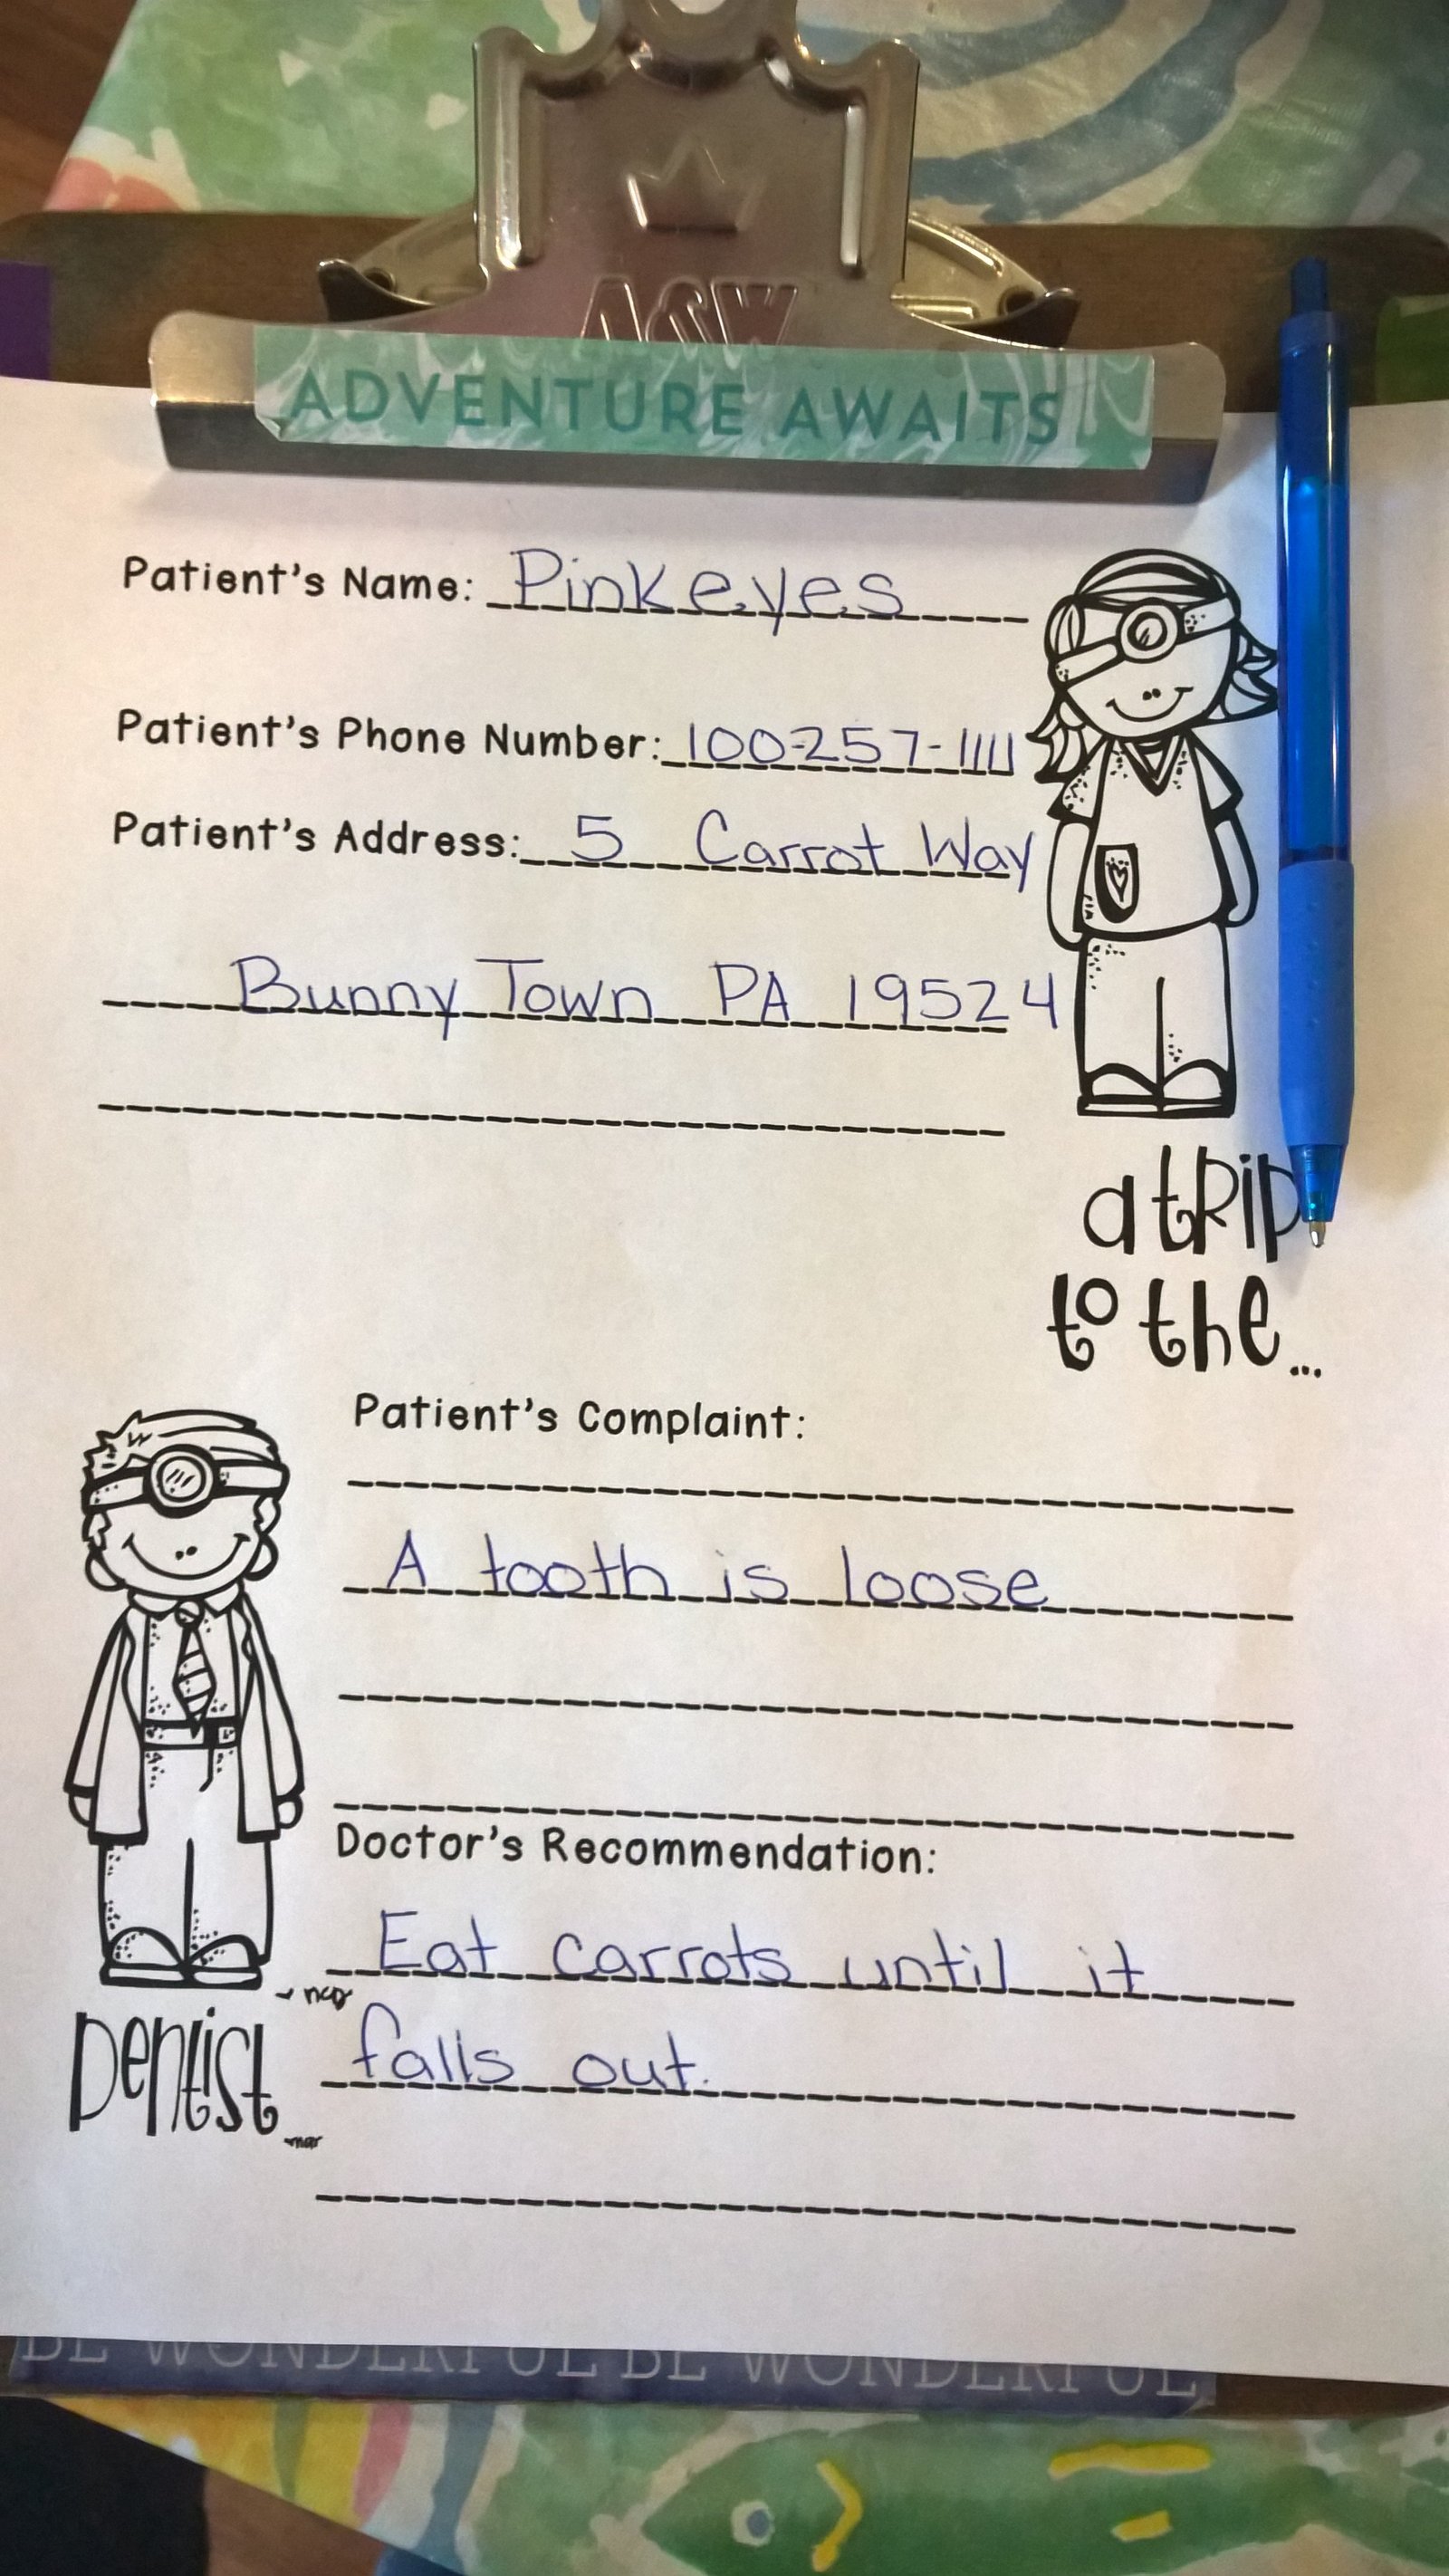 ADVENTURE AWAITS
Patient's Name: Pinkeyes
Patient's Phone Number: 100-257-1111
Patient's Address: 5 Carrot Way
Bunny Town PA 19524
a trip
to the...
Patient's Complaint:
A tooth is loose
Doctor's Recommendation:
Eat carrots until it
falls out.
Dentist
BE WONDERFUL BE WONDERFUL